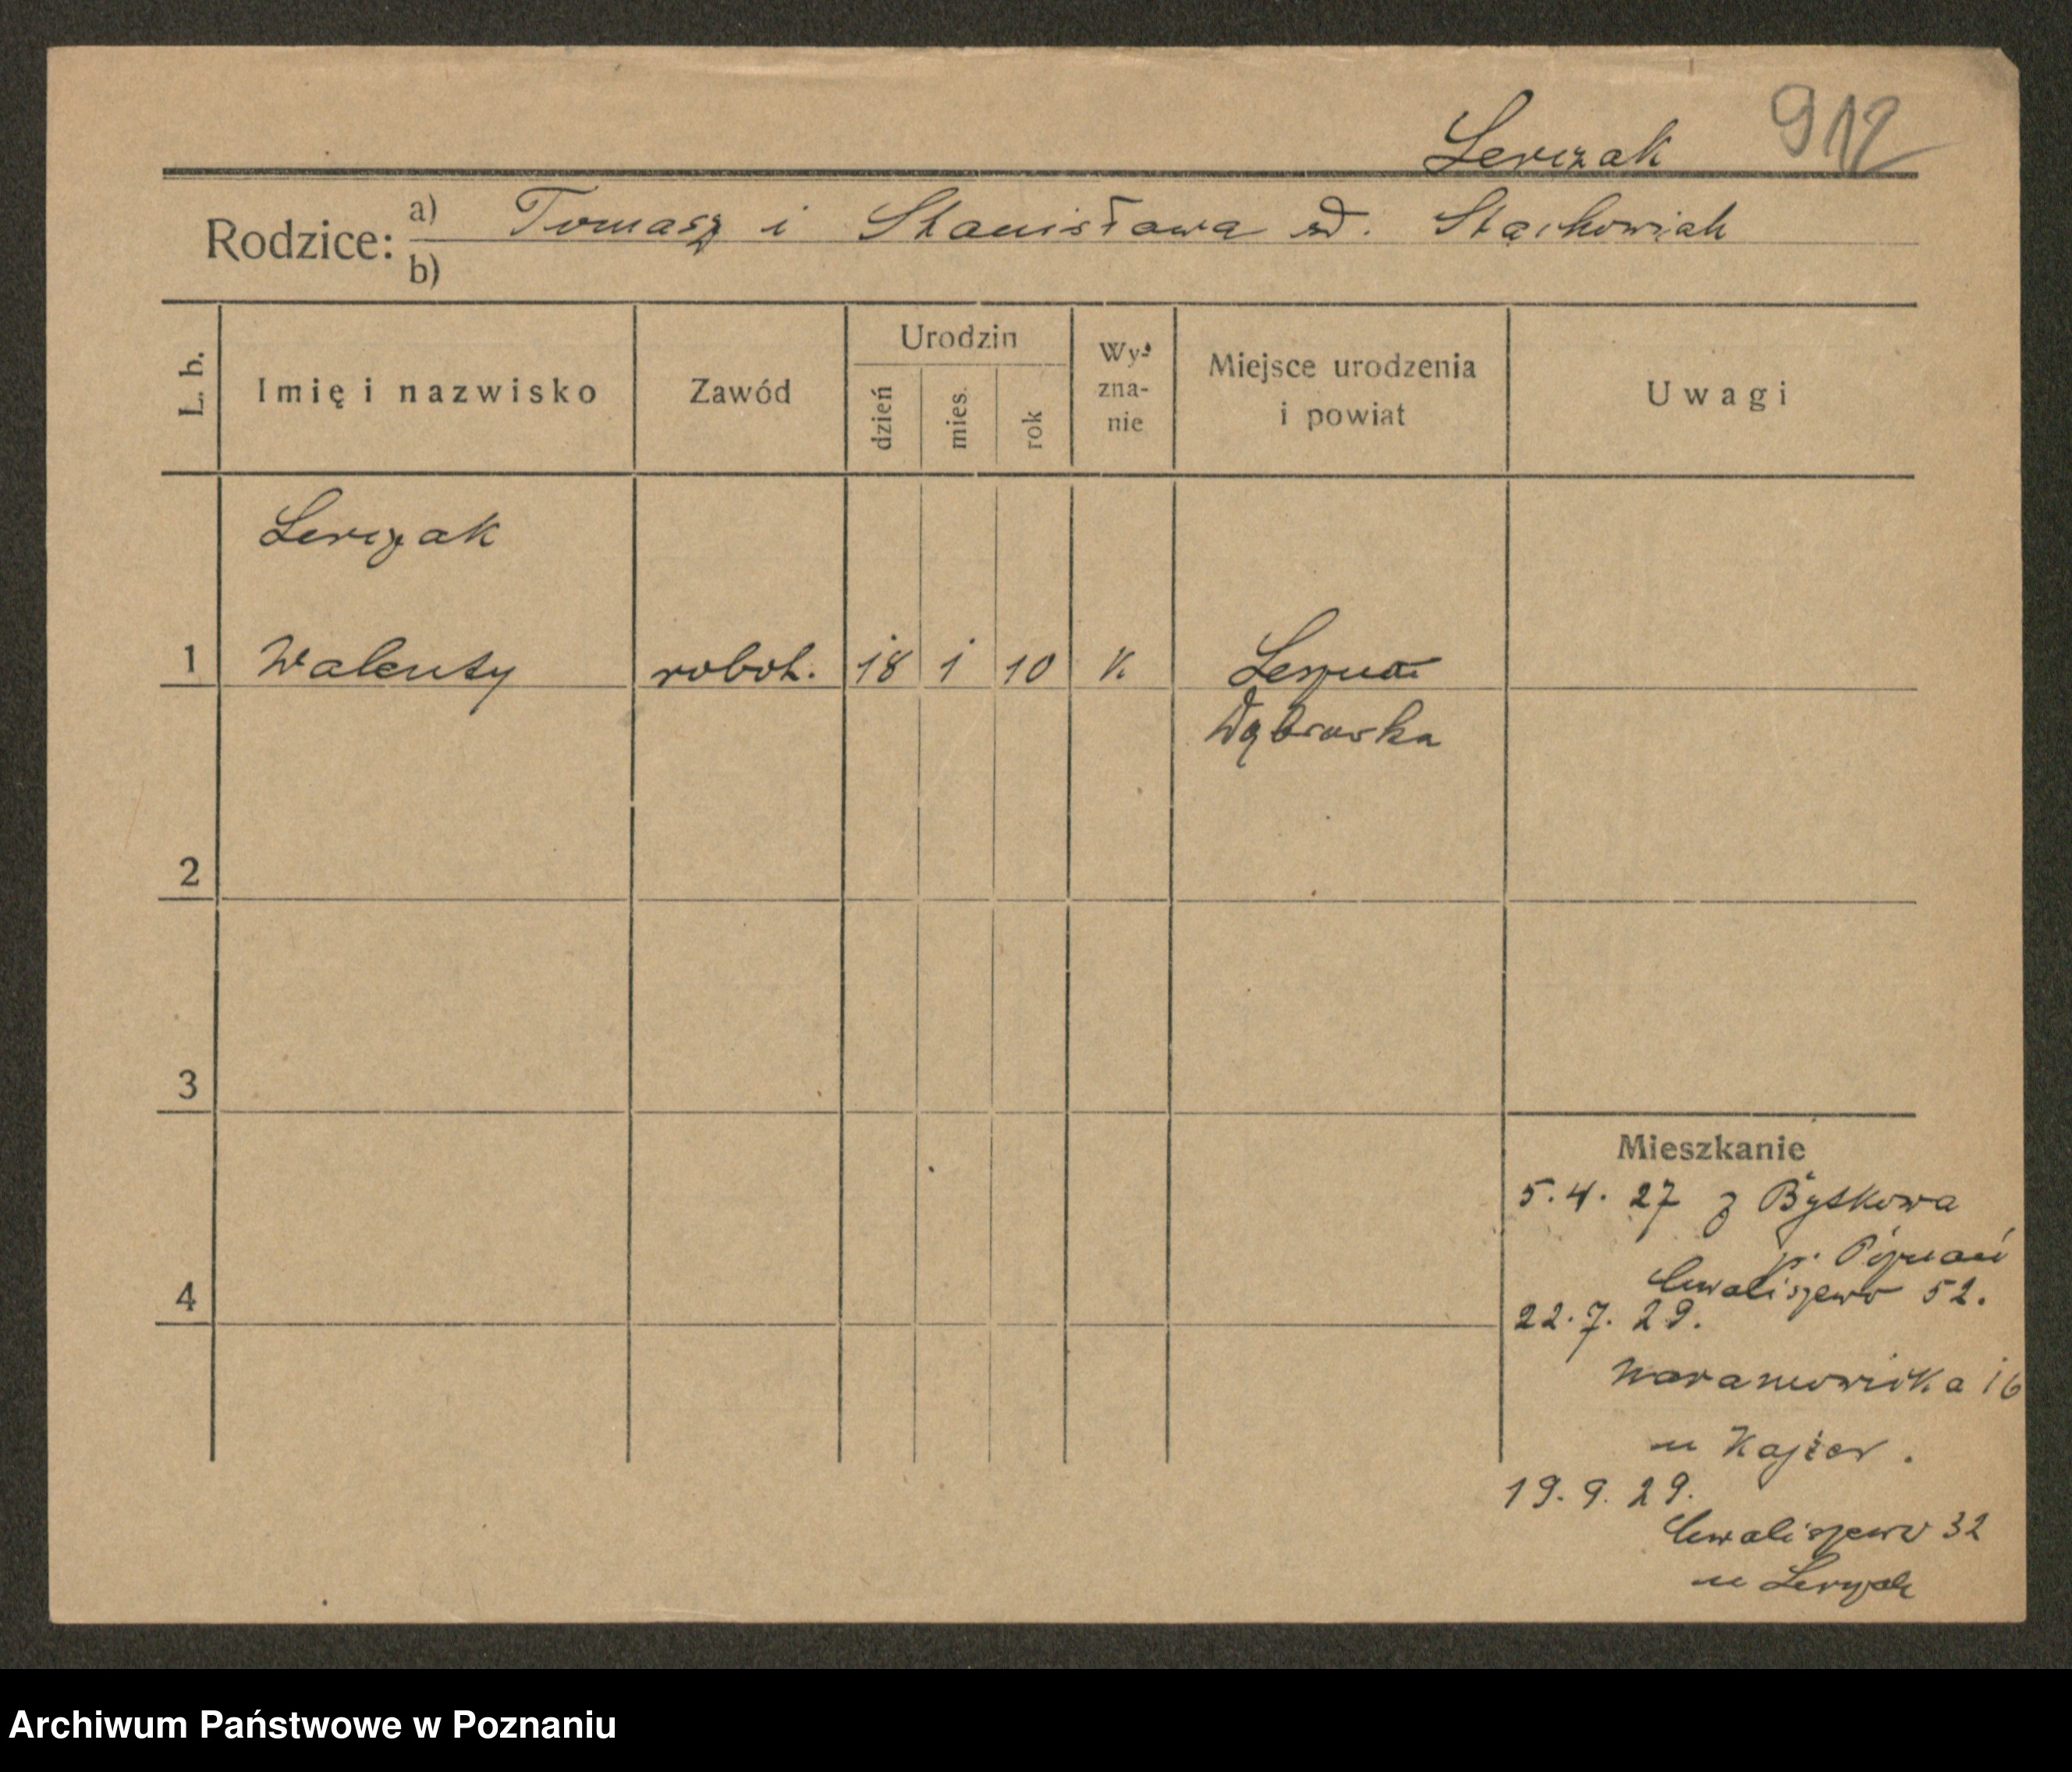 Lerczak 912
Rodzice: a) Tomasz i Stanisława rd. Stachowiak
b)
L. b.
Imię i nazwisko
Zawód
Urodzin
dzień
mies.
rok
Wy-
zna-
nie
Miejsce urodzenia
i powiat
Uwagi
Lerczak
1 Walenty robot. 18 1 10 K
Dąbrowka
2
3
Mieszkanie
5. 4. 27 z Bytkowa
p. Poznań
4
Chwaliszewo 52.
22. 7. 29.
16
u
19. 9. 29.
Chwaliszewo 32
u Lerczak
Archiwum Państwowe w Poznaniu